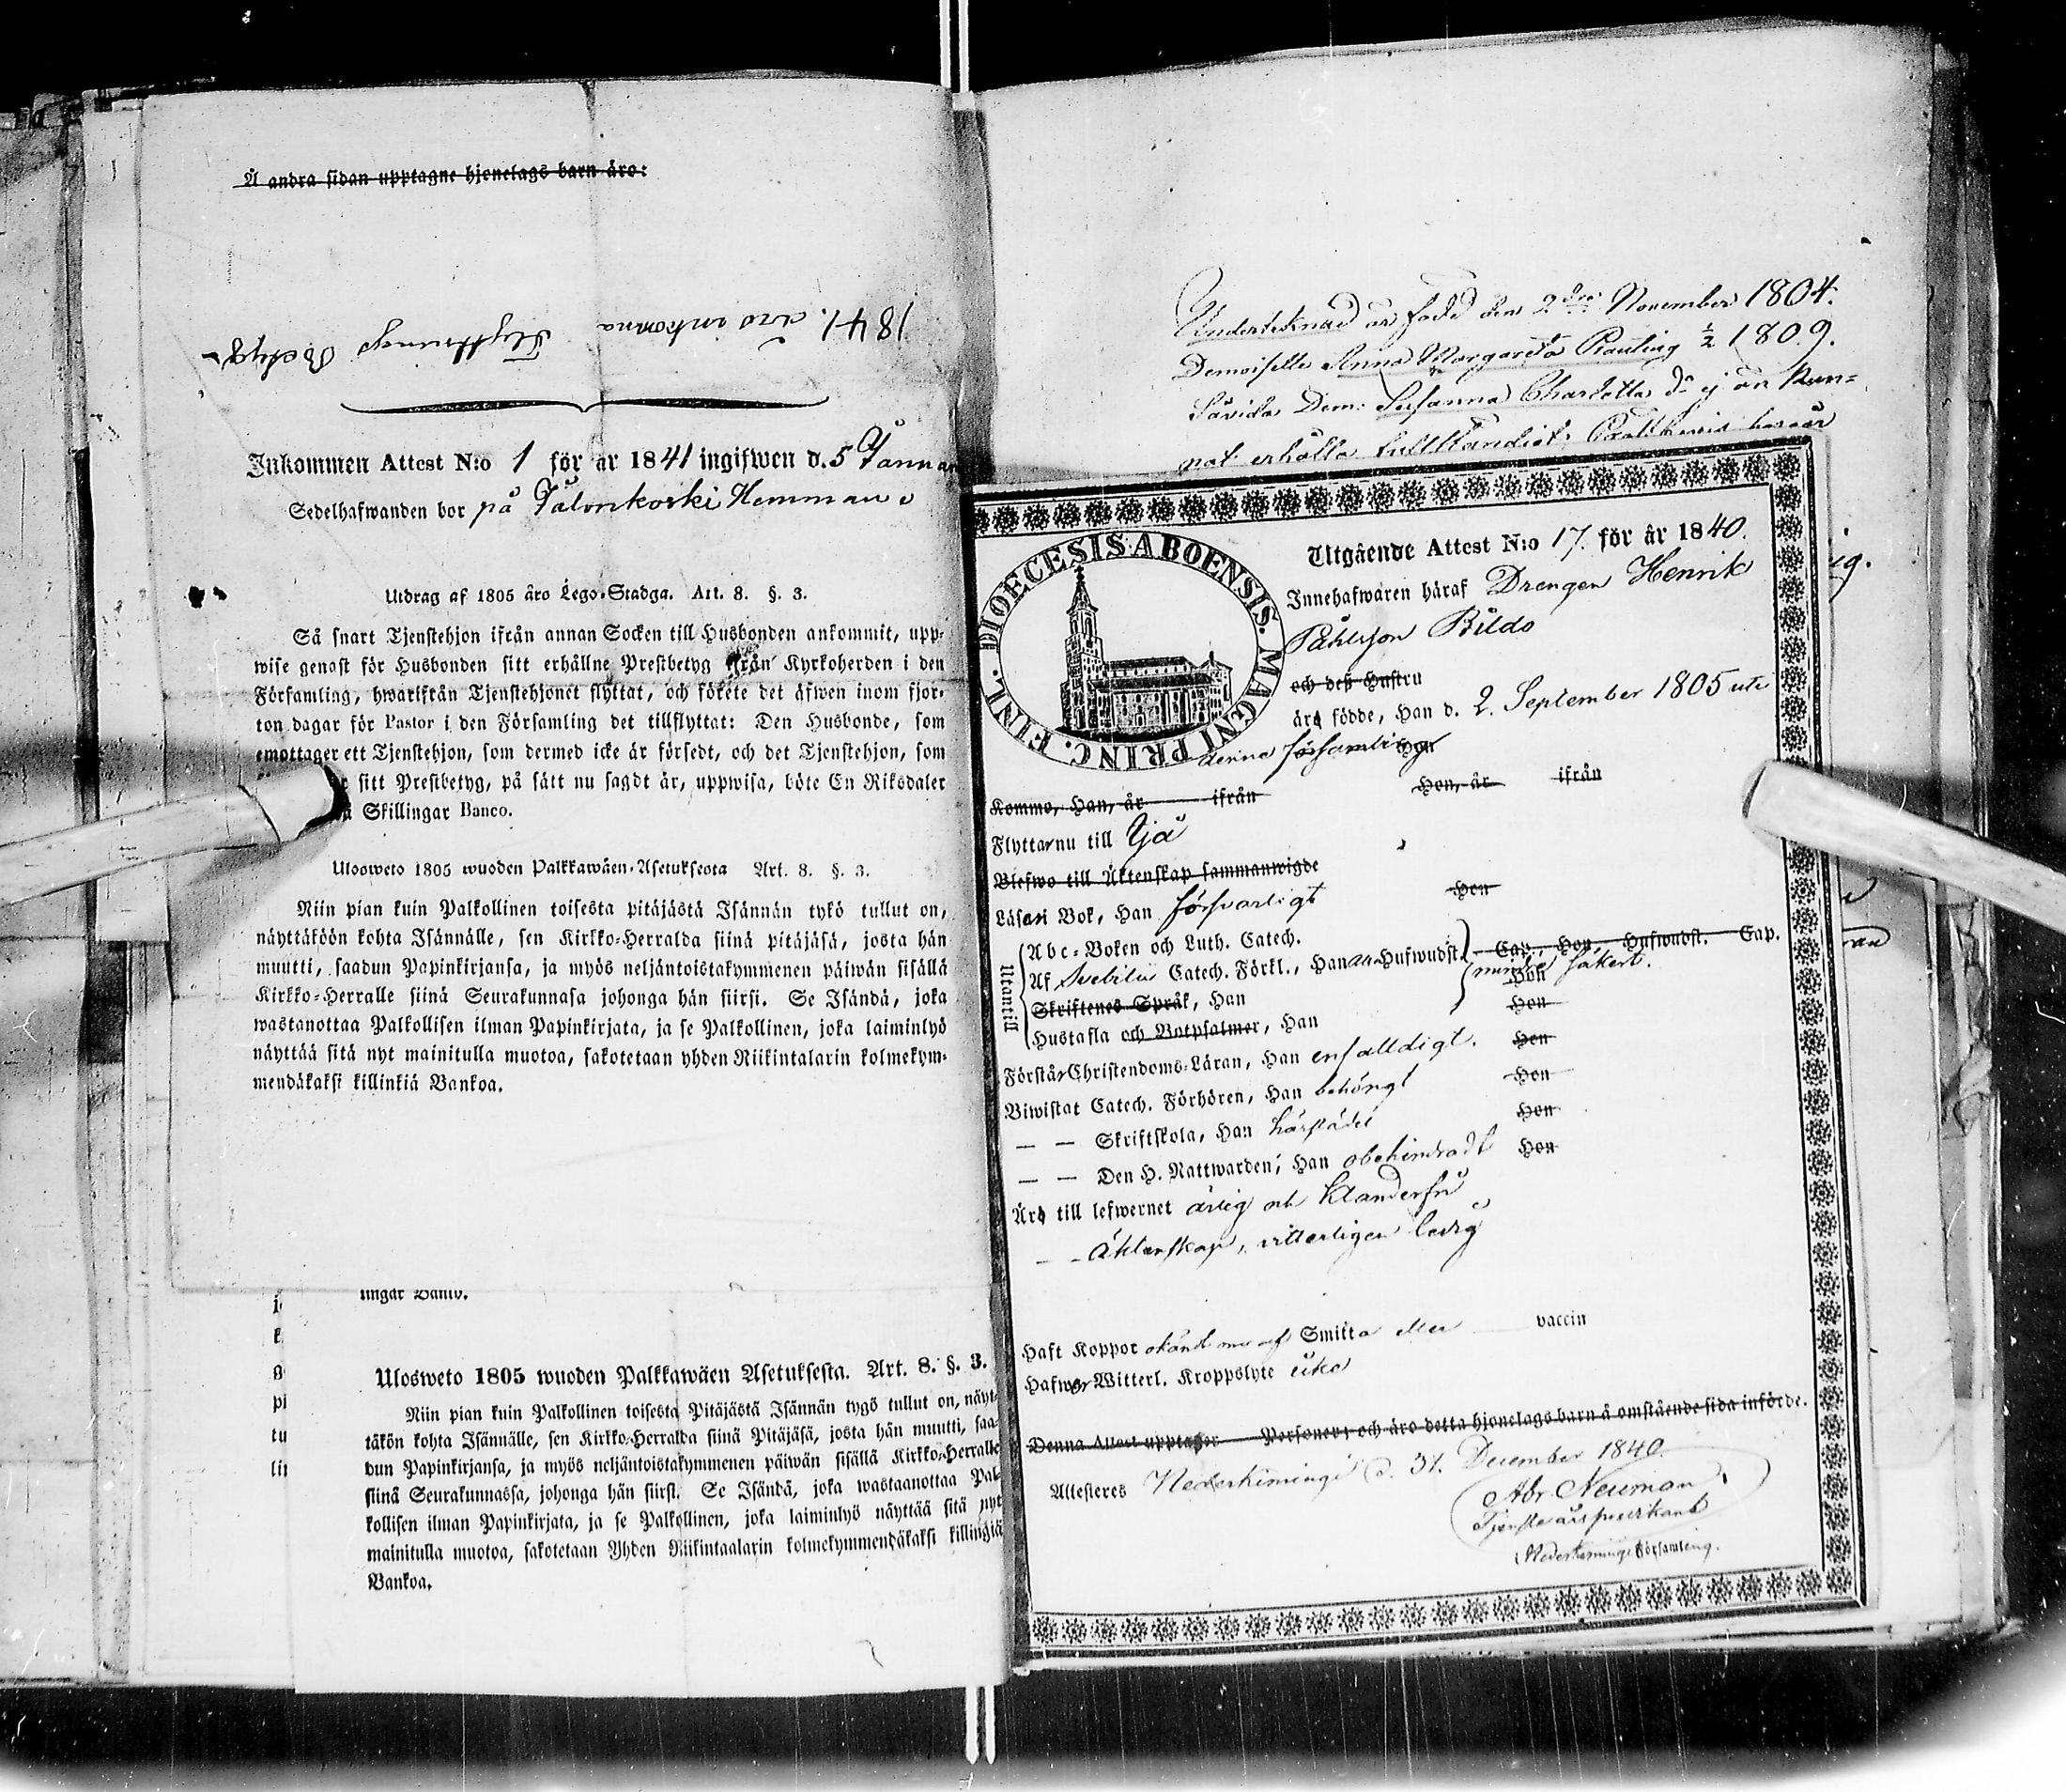 Å andra sidan upptagne hjonelags barn äro:
1841. års inkomna Flyttnings Betyg
Inkommen Attest N:o 1 för år 1841 ingifwen d. 5 Januar
Sedelhafwanden bor på Jälonkoski Hemman
Utdrag af 1805 års Lego-Stadga. Art. 8. §. 3.
Så snart Tjenstehjon ifrån annan Socken till Husbonden ankommit, upp-
wise genast för Husbonden sitt erhållne Prestbetyg ifrån Kyrkoherden i den
Församling, hwarifrån Tjenstehjonet flyttat, och förete det äfwen inom fjor-
ton dagar för Pastor i den Församling det tillflyttat: Den Husbonde, som
emottager ett Tjenstehjon, som dermed icke är försedt, och det Tjenstehjon, som
sitt Prestbetyg, på sätt nu sagdt är, uppwisa, böte En Riksdaler
Skillingar Banco.
Ulosweto 1805 wuoden Palkkawäen-Asetuksesta Art. 8. §. 3.
Niin pian kuin Palkollinen toisesta pitäjästä Isännän tykö tullut on,
näyttäköön kohta Isännälle, sen Kirkko-Herralda siinä pitäjäsä, josta hän
muutti, saadun Papinkirjansa, ja myös neljäntoistakymmenen päiwän sisällä
Kirkko-Herralle siinä Seurakunnasa johonga hän siirsi. Se Isändä, joka
wastanottaa Palkollisen ilman Papinkirjata, ja se Palkollinen, joka laiminlyö
näyttää sitä nyt mainitulla muotoa, sakotetaan yhden Riikintalarin kolmekym-
mendäkaksi killinkiä Bankoa.
ingar Banko.
Ulosweto 1805 wuoden Palkkawäen Asetuksesta. Art. 8. §. 3.
Niin pian kuin Palkollinen toisesta Pitäjästä Isännän tygö tullut on, näyt-
täkön kohta Isännälle, sen Kirkko-Herralda siinä Pitäjäsä, josta hän muutti, saa-
dun Papinkirjansa, ja myös neljäntoistakymmenen päiwän sisällä Kirkko-Herralle
siinä Seurakunnassa, johonga hän siirsi. Se Isändä, joka wastaanottaa Pal-
kollisen ilman Papinkirjata, ja se Palkollinen, joka laiminlyö näyttää sitä nyt
mainitulla muotoa, sakotetaan Yhden Riikintaalarin kolmekymmendäkaksi killingiä
Bankoa.
Undertecknad är född den 2dre November 1804.
Demoiselle Anna Margareta Planting ½ 1809.
Såvida Dem: Susanna Charlotta d: ej än kun-
nat erhålla fullständigt
DIOECESIS ABOENSIS. MAGNI PRINC. FINL.
Utgående Attest N:o 17. för år 1840.
Innehafwaren häraf Drengen Henrik
Påhlsson Bildo
och deß Hustru
äro födde, Han d. 2. September 1805 uti
denna församling Hon
Komme, Han, år ifrån Hon, år ifrån
Flyttar nu till Ijå
Blefwo till Äktenskap sammanwigde
Läsa i Bok, Han försvarligt Hon
Utantill
Abc-Boken och Luth. Catech.
Af Svebilii Catech. Förkl., Han Hufwudst. Cap., Hon Hufwudst. Cap.
mindre säkert.
Skriftenes Språk, Han Hon
Hustafla och Botpsalmer, Han Hon
Förstår Christendoms-Läran, Han enfalldigt. Hon
Biwistat Catech. Förhören, Han behörigt Hon
— — Skriftskola, Han härstädes Hon
— — Den H. Nattwarden, Han obehindradt Hon
Äro till lefwernet ärlig och klanderfri
— — äktenskap, vitterligen ledig
Haft Koppor okändt om af Smitta eller vaccin
Hafwer Witterl. Kroppslyte icke
Denna Attest upptager Personer; och äro detta hjonelags barn å omstående sida införde.
Attesteres Nederkimingi d. 31. December 1840.
Abr. Neuman
Tjensteårspredikant
Nederkimingi Församling.